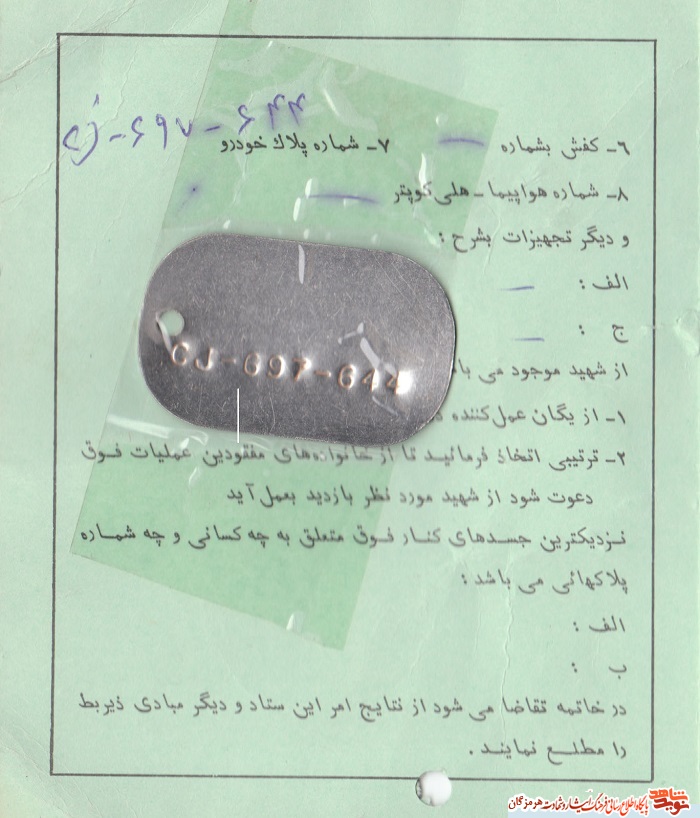 cj-۶۹۷-۶۴۴
۶- کفش بشماره — ۷- شماره پلاک خودرو
۸- شماره هواپیما - هلی کوپتر —
و دیگر تجهیزات بشرح :
الف : —
ج : —
CJ-697-644
از شهید موجود می با
۱- از یگان عمل کننده د
۲- ترتیبی اتخاذ فرمائید تا از خانواده‌های مفقودین عملیات فوق
دعوت شود از شهید مورد نظر بازدید بعمل آید
نزدیکترین جسدهای کنار فوق متعلق به چه کسانی و چه شماره
پلاکهائی می باشد :
الف :
ب :
در خاتمه تقاضا می شود از نتایج امر این ستاد و دیگر مبادی ذیربط
را مطلع نمایند .
نوید شاهد
پایگاه اطلاع رسانی فرهنگ ایثار و شهادت هرمزگان